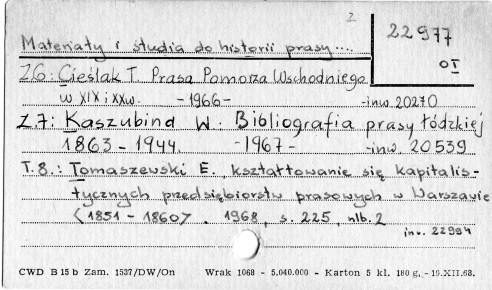 2
22977
OI
Materiały i studia do historii prasy.....
Z6: Cieślak T. Prasa Pomorza Wschodniego
w XIX i XX w. -1966- -inw. 20270
Z.7: Kaszubina W. Bibliografia prasy łódzkiej
1863-1944 -1967- -inw 20539
T.8.: Tomaszewski E., kształtowanie się kapitalis-
tycznych przedsiębiorstw prasowych w Warszawie
<1851-1860>. 1968, s. 225, nlb. 2
inw. 22994
CWD B 15 b Zam. 1537/DW/On Wrak 1068 - 5.040.000 - Karton 5 kl. 180 g. - 19.XII.68.